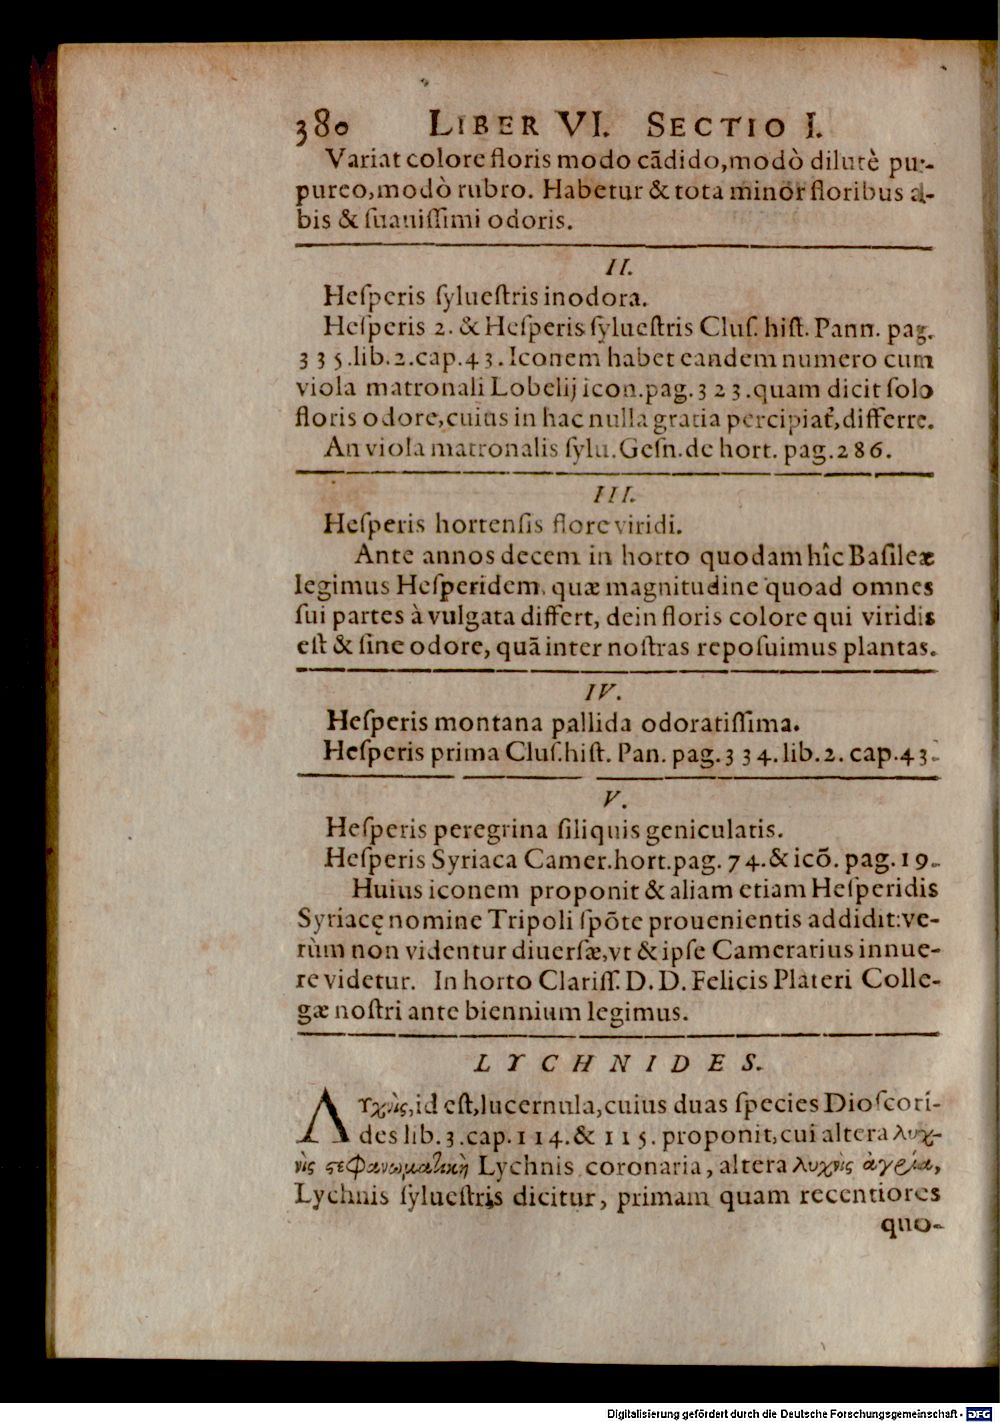 380 LIBER VI. SECTIO I.
Variat colore floris modo cādido, modò dilutè pur-
pureo, modò rubro. Habetur & tota minor floribus al-
bis & ſuauiſſimi odoris.
II.
Heſperis ſylueſtris inodora.
Heſperis 2. & Heſperis ſylueſtris Cluſ. hiſt. Pann. pag.
335. lib. 2. cap. 43. Iconem habet eandem numero cum
viola matronali Lobelij icon. pag. 323. quam dicit ſolo
floris odore, cuius in hac nulla gratia percipiat᷑, differre.
An viola matronalis ſylu. Geſn. de hort. pag. 286.
III.
Heſperis hortenſis flore viridi.
Ante annos decem in horto quodam hîc Baſileæ
legimus Heſperidem, quæ magnitudine quoad omnes
ſui partes à vulgata differt, dein floris colore qui viridis
eſt & ſine odore, quā inter noſtras repoſuimus plantas.
IV.
Heſperis montana pallida odoratiſſima.
Heſperis prima Cluſ. hiſt. Pan. pag. 334. lib. 2. cap. 43.
V.
Heſperis peregrina ſiliquis geniculatis.
Heſperis Syriaca Camer. hort. pag. 74. & icō. pag. 19.
Huius iconem proponit & aliam etiam Heſperidis
Syriacę nomine Tripoli ſpōte prouenientis addidit: ve-
rùm non videntur diuerſæ, vt & ipſe Camerarius innue-
re videtur. In horto Clariſſ. D. D. Felicis Plateri Colle-
gæ noſtri ante biennium legimus.
LYCHNIDES.
Λυχνὶς, id eſt, lucernula, cuius duas ſpecies Dioſcori-
des lib. 3. cap. 114. & 115. proponit, cui altera λυχ-
νὶς ϛεφανωματικὴ Lychnis coronaria, altera λυχνὶς ἀγρία,
Lychnis ſylueſtris dicitur, primam quam recentiores
quo-
Digitalisierung gefördert durch die Deutsche Forschungsgemeinschaft - DFG